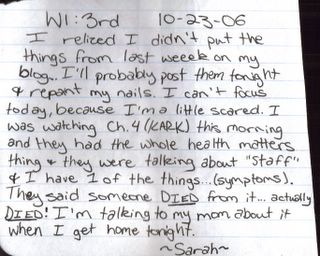 W1:3rd 10-23-06
I relized I didn't put the
things from last weeek on my
blog.. I'll probably post them tonight
& repaint my nails. I can't focus
today, because I'm a little scared. I
was watching Ch. 4 (KARK) this morning
and they had the whole health matters
thing & they were talking about "Staff"
& I have 1 of the things...(symptoms).
They said someone DIED from it... actually
DIED! I'm talking to my mom about it
when I get home tonight.
~Sarah~